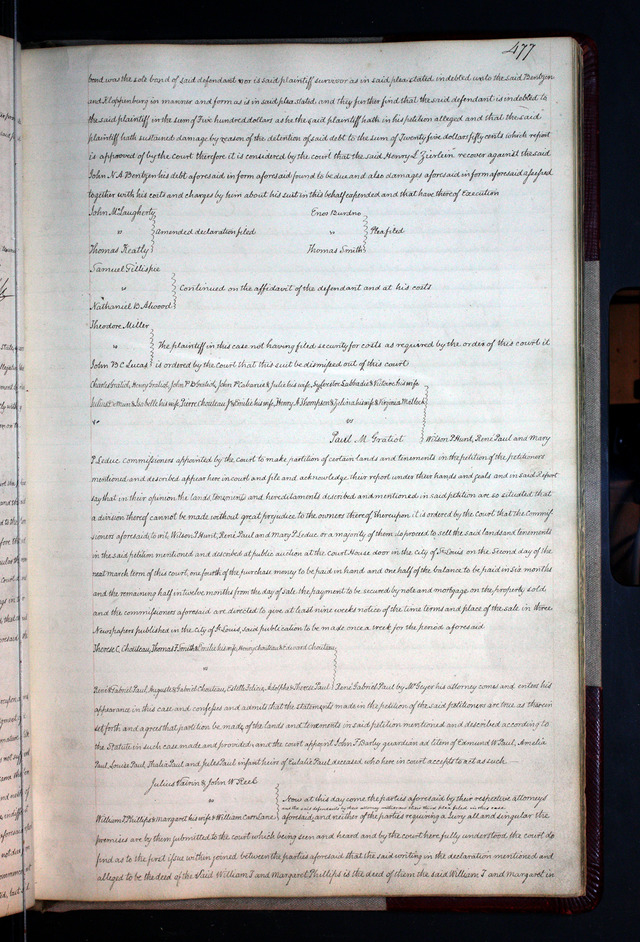 477
bond was the sole bond of said defendant nor is said plaintiff survivor as in said plea stated indebted unto the said Bentzen
and Kloppenburg in manner and form as is in said plea stated and they further find that the said defendant is indebted to
the said plaintiff in the sum of Five hundred dollars as he the said plaintiff hath in his petition alleged and that the said
plaintiff hath sustained damage by reason of the detention of said debt to the sum of Twenty five dollars fifty cents which report
is approved of by the Court therefore it is considered by the court that the said Henry L recover against the said
John N. A. Bentzen his debt aforesaid in form aforesaid found to be due and also damages aforesaid in form aforesaid assessed
together with his costs and charges by him about his suit in this behalf expended and that have thereof Execution
John McLaugherty Enos
" Amended declaration filed " Plea filed
Thomas Keatly Thomas Smith
Samuel Gillispee
" Continued on the affidavit of the defendant and at his costs
Nathaniel B Atwood
Theodore Miller
" The plaintiff in this case not having filed security for costs as required by the order of this court it
John B C Lucas is ordered by the Court that this suit be dismissed out of this court
Charles Gratiot, Henry Gratiot, John P B Gratiot, John P Cabanne & Julie his wife, Sylvestre Labbadie & Victoire his wife
Julius & Isabelle his wife, Pierre Chouteau Jr & Emilie his wife, Henry A Thompson & Julina his wife & Virginia
vs
Paul M. Gratiot Wilson P Hunt, René Paul and Mary
P Leduc commissioners appointed by the Court to make partition of certain lands and tenements in the petition of the petitioners
mentioned and described appear here in court and file and acknowledge their report under their hands and seals and in said Report
say that in their opinion the lands, tenements and hereditaments described and mentioned in said petition are so situated that
a division thereof cannot be made without great prejudice to the owners thereof Thereupon it is ordered by the Court that the commis-
sioners aforesaid, to wit, Wilson P Hunt, René Paul and Mary P Leduc or a majority of them do proceed to sell the said lands and tenements
in the said petition mentioned and described at public auction at the Court House door in the City of St Louis on the Second day of the
next march term of this court, one fourth of the purchase money to be paid in hand and one half of the balance to be paid in six months
and the remaining half in twelve months from the day of sale, the payment to be secured by note and mortgage on the property sold,
and the commissioners aforesaid are directed to give at least nine weeks notice of the time terms and place of the sale in three
Newspapers published in the City of St Louis, said publication to be made once a week for the period aforesaid
Therese C. Chouteau, Thomas F Smith & Emilie his wife, Henry Chouteau & Edward Chouteau
vs
René & Gabriel Paul, Auguste & Gabriel Chouteau, Estelle, Adolphe & Therese Paul René Gabriel Paul by Mr Geyer his attorney comes and enters his
appearance in this case and confesses and admits that the statements made in the petition of the said petitioners are true as therein
set forth and agrees that partition be made of the lands and tenements in said petition mentioned and described according to
the Statute in such case made and provided and the court appoint John T Darby guardian ad litem of Edmund W Paul, Amelia
Paul, Louise Paul, Thalia Paul and Jules Paul infant heirs of Eulalie Paul deceased who here in court accepts to act as such
Julius Vairin & John W Reel
vs Now at this day come the parties aforesaid by their respective attorneys
William T Phillips & Margaret his wife & William Carr Lane aforesaid, and neither of the parties requiring a Jury all and singular the
premises are by them submitted to the court which being seen and heard and by the court here fully understood the court do
find as to the first issue within joined between the parties aforesaid that the said writing in the declaration mentioned and
alleged to be the deed of the said William T and Margaret Phillips is the deed of them the said William T and Margaret in